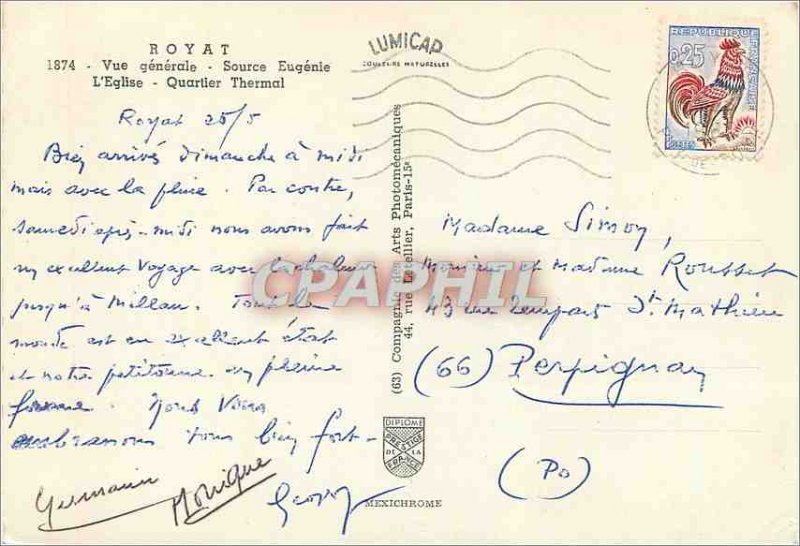 ROYAT
1874 - Vue générale - Source Eugénie
L'Eglise - Quartier Thermal
LUMICAP
COULEURS NATURELLES
0,25
Royat 25/5
Bien arrivés dimanche à midi
mais avec la pluie. Par contre,
samedi après-midi nous avons fait
un excellent voyage avec la chaleur
jusqu'à Millau. Tout le
monde est en excellent état
et notre petitoune en pleine
forme. Nous vous
embrassons tous bien fort -
Germain Monique
(63) Compagnie des Arts Photomécaniques
44, rue Letellier, Paris-15e
Madame Simon,
Monsieur et Madame Rousset
43 rue rempart St Mathieu
(66) Perpignan
(Po)
CPAPHIL
DIPLOME
PRESTIGE
DE LA
FRANCE
MEXICHROME